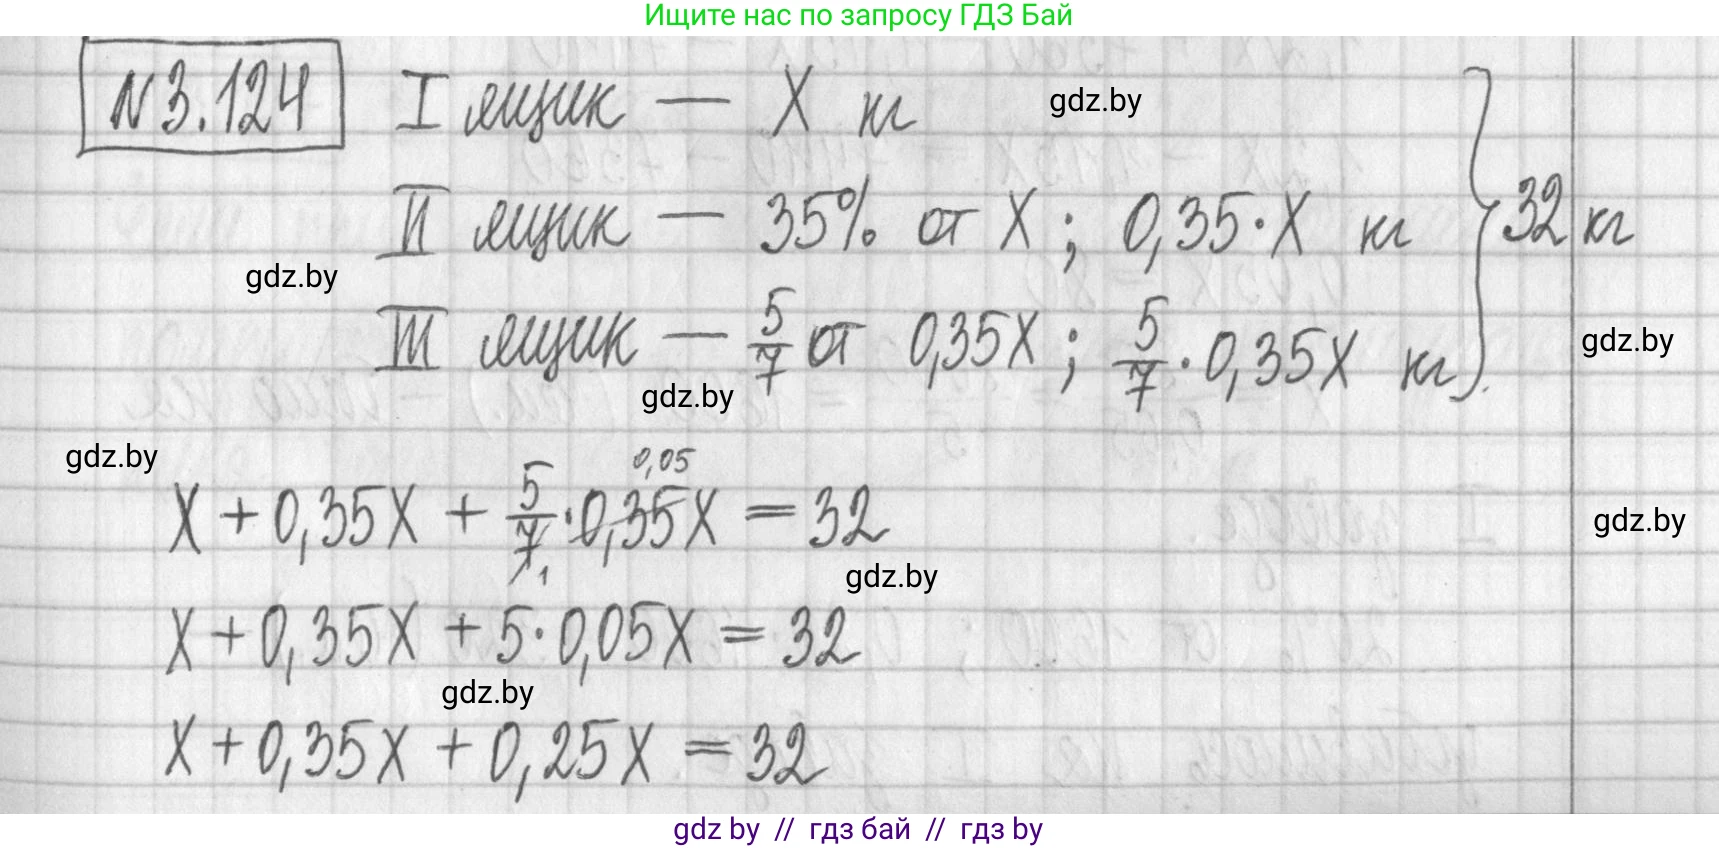 Ищите нас по запросу ГДЗ Бай
N3.124 I ящик — X кг gdz.by
II ящик — 35% от X; 0,35·X кг } 32 кг
gdz.by
III ящик — 5/7 от 0,35X; 5/7·0,35X кг gdz.by
gdz.by
gdz.by
0,05
X + 0,35X + 5/7·0,35X = 32 gdz.by
1
gdz.by
X + 0,35X + 5·0,05X = 32
gdz.by
X + 0,35X + 0,25X = 32
gdz by // гдз бай // гдз by